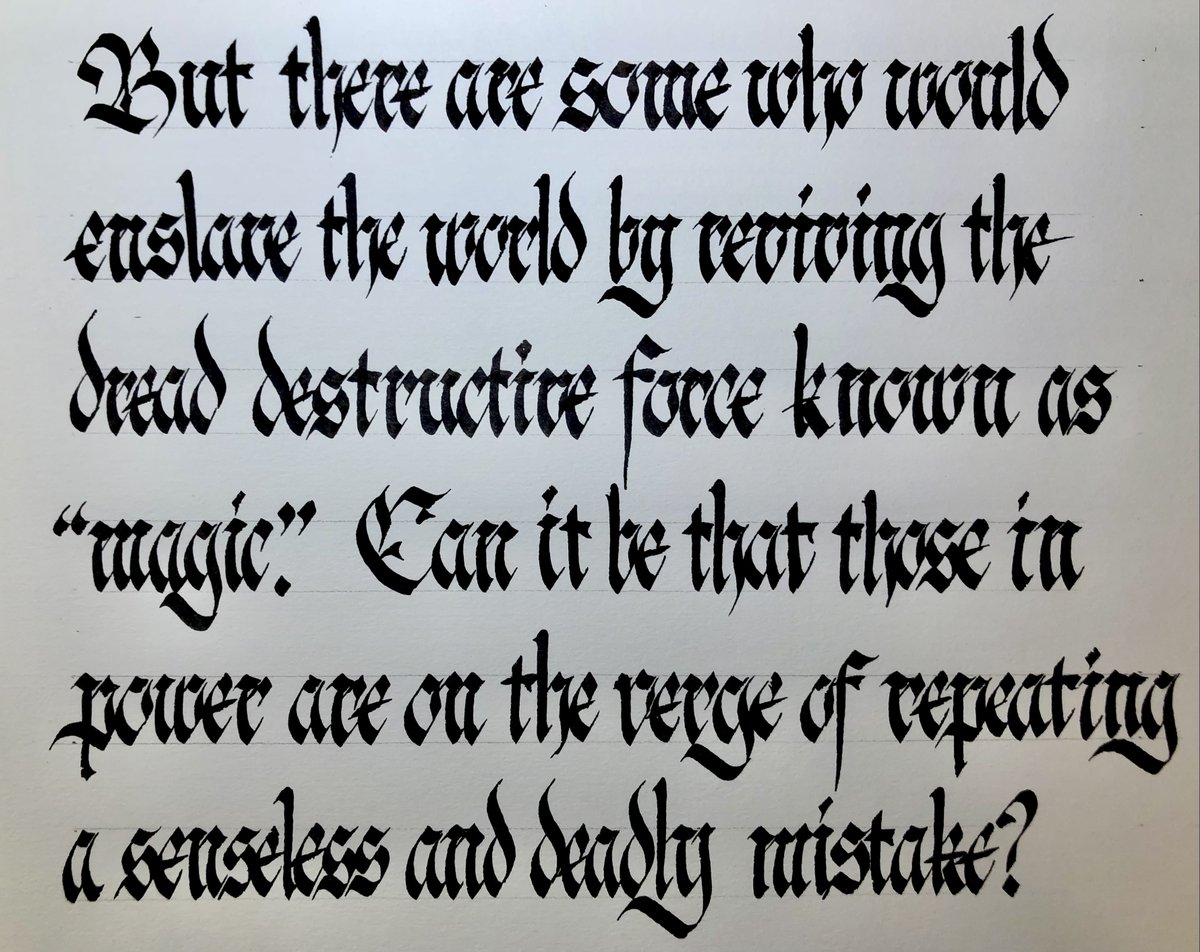 But there are some who would
enslave the world by reviving the
dread destructive force known as
“magic.” Can it be that those in
power are on the verge of repeating
a senseless and deadly mistake?